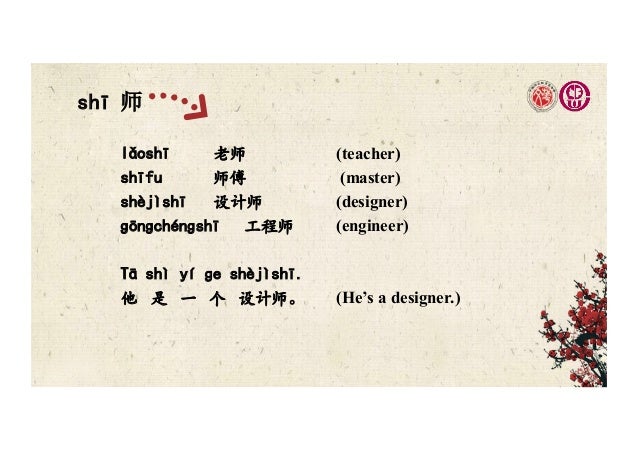 shī 师
lǎoshī 老师 (teacher)
shīfu 师傅 (master)
shèjìshī 设计师 (designer)
gōngchéngshī 工程师 (engineer)
Tā shì yí ge shèjìshī.
他 是 一 个 设计师。 (He's a designer.)